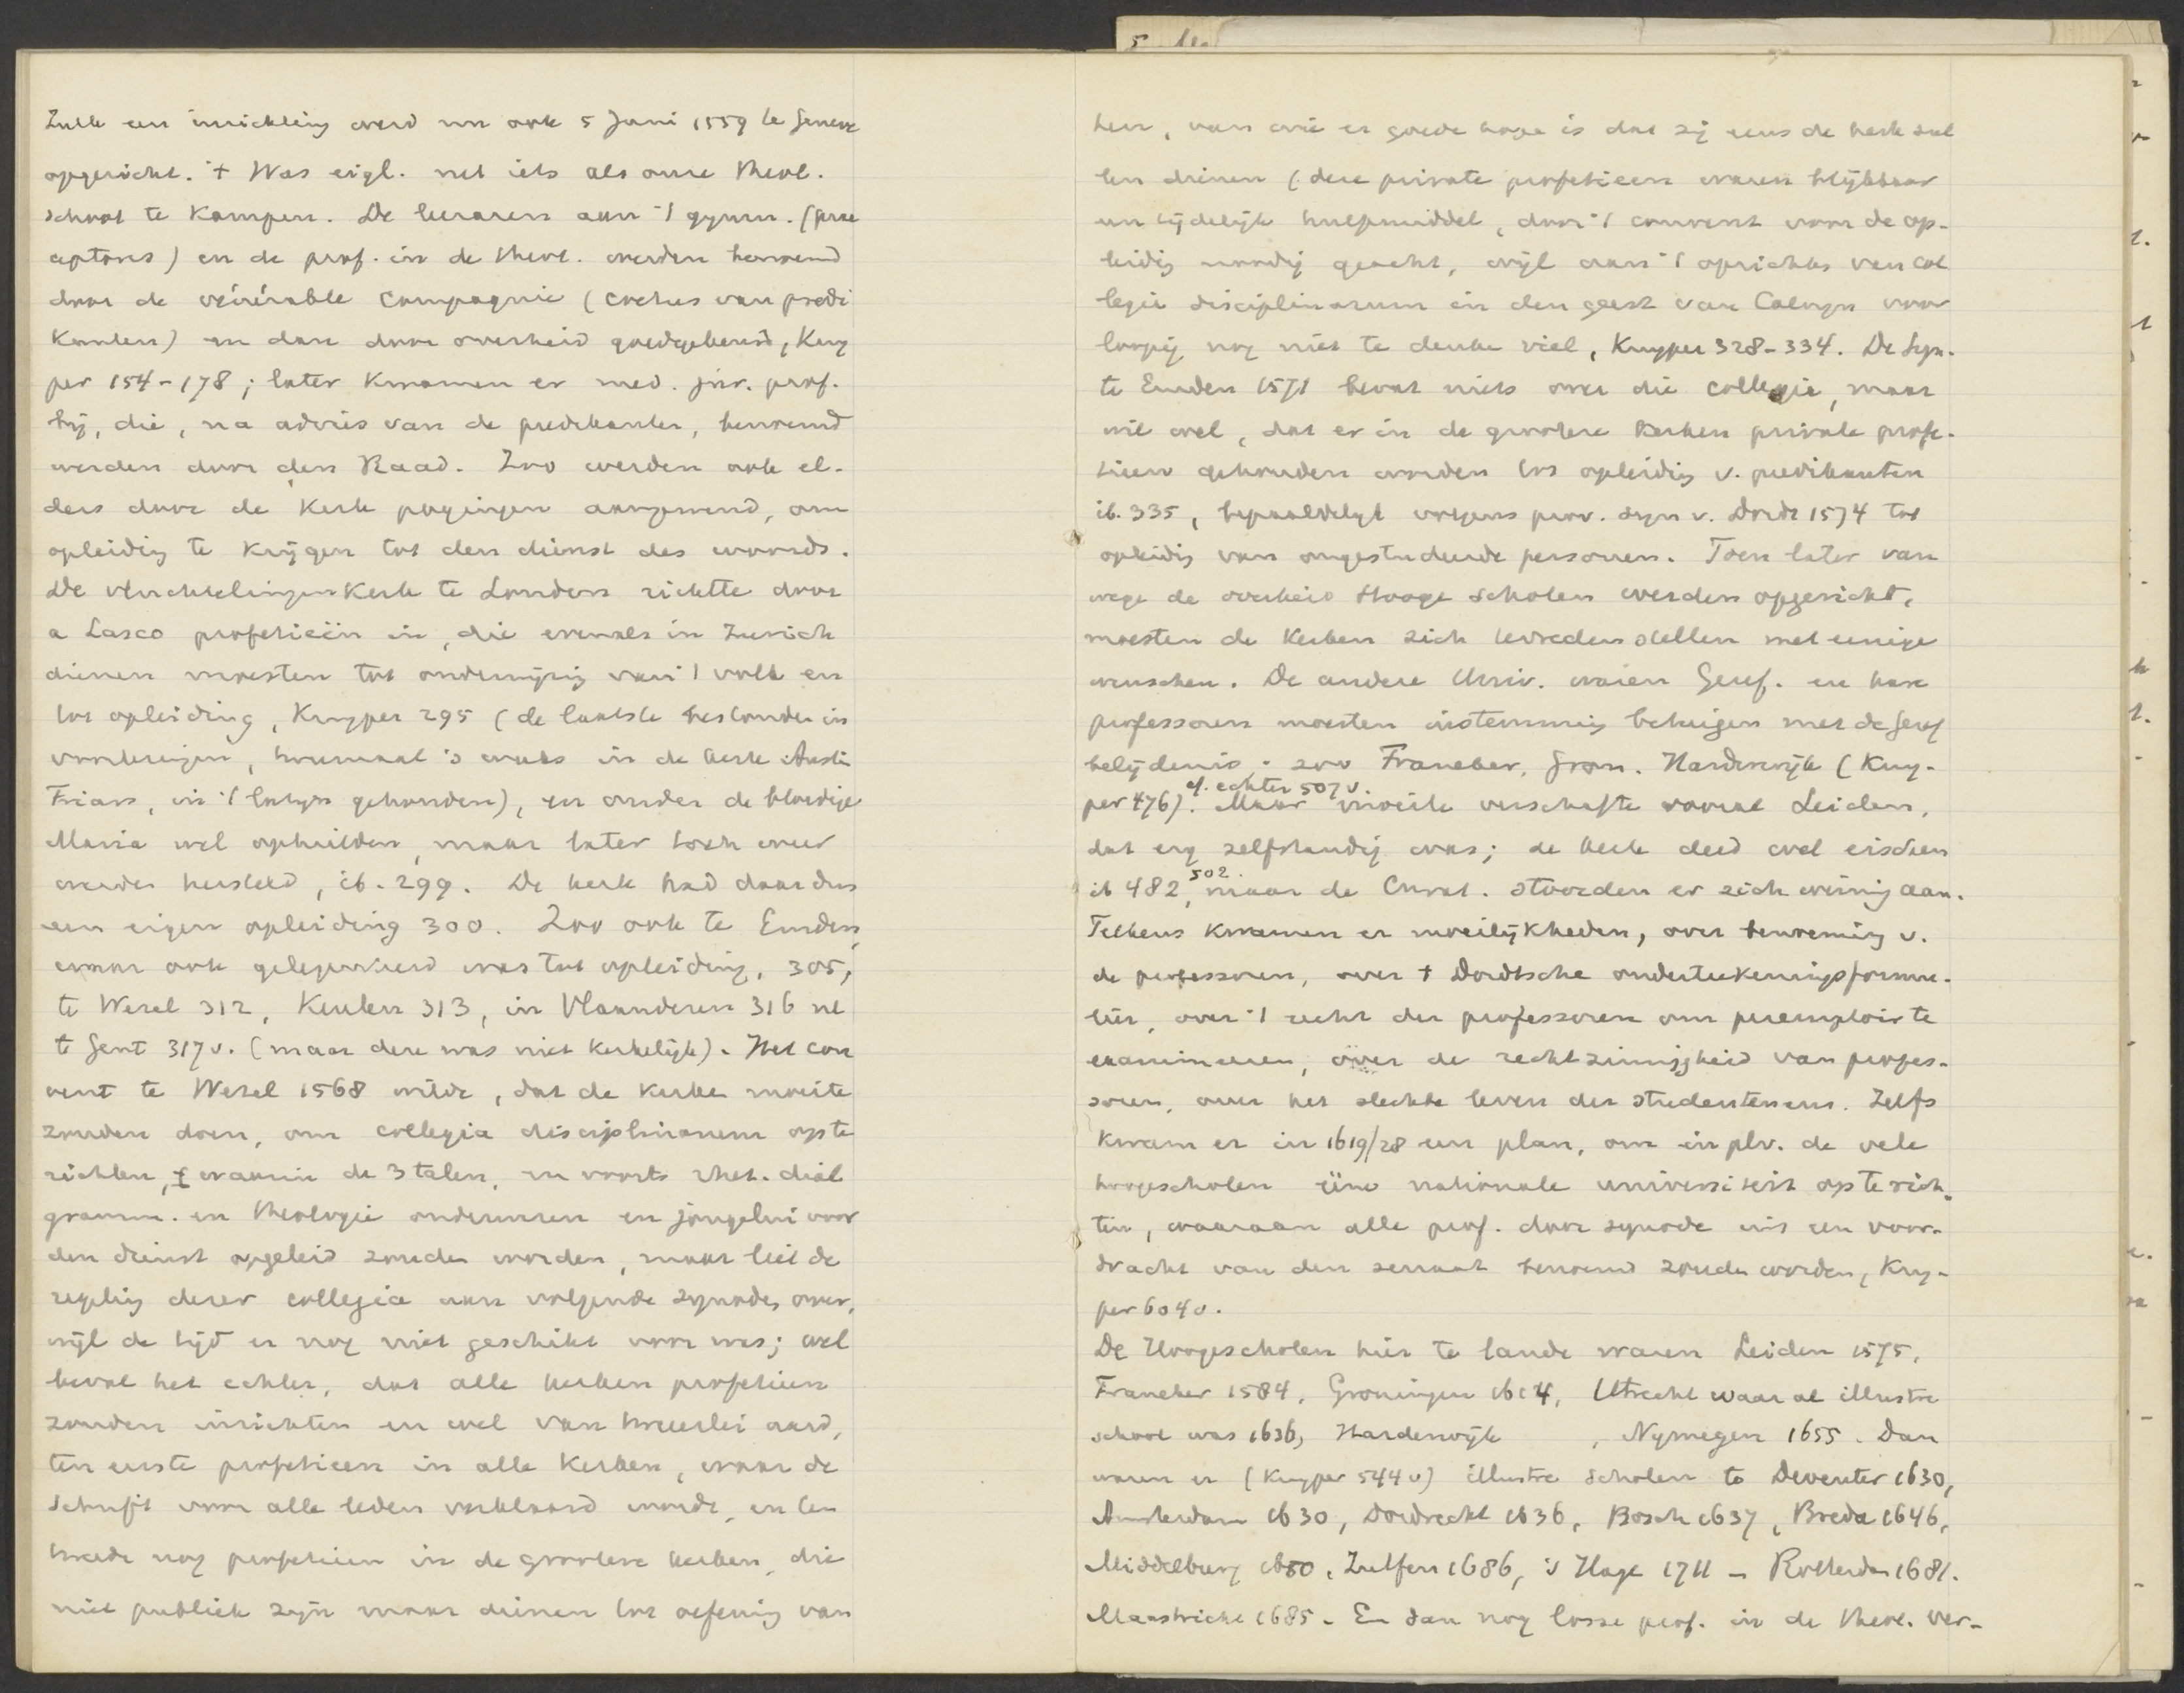 Zulk een inrichting werd nu ook 5 Juni 1559 te Geneve
opgericht. 't Was eigl. net iets als onze theol.
school te Kampen. De leeraren aan 't gymn. (prae
ceptores) en de prof. in de theol. werden benoemd
door de vénérable Compagnie (coetus van predi
kanten) en dan door overheid goedgekeurd, Kuy
per 154-178; later kwamen er med. jur. prof.
bij, die, na advies van de predikanten, benoemd
werden door den Raad. Zoo werden ook el-
ders door de Kerk pogingen aangewend, om
opleidig te krijgen tot den dienst des woords.
De vluchtelingenkerk te Londen richtte door
a Lasco profetieën in, die evenals in Zurich
dienen moesten tot onderwijzig van 't volk en
tot opleiding, Kuyper 295 (de laatste bestonden in
voorlezingen, tweemaal 's weeks in de kerk Austin
Friars, in 't latijn gehouden), en onder de bloedige
Maria wel ophielden, maar later toch weer
werden hersteld, ib. 299. De kerk had daar dus
een eigen opleiding 300. Zoo ook te Emden,
waar ook gelegenheid was tot opleiding, 305,
te Wezel 312, Keulen 313, in Vlaanderen 316 nl
te Gent 317v. (maar deze was niet kerkelijk). Het con
vent te Wezel 1568 wilde, dat de kerken moeite
zouden doen, om collegia disciplinarum op te
richten, waarin de 3 talen, en voorts rhet. dial
gramm. en theologie onderwezen en jongelui voor
den dienst opgeleid zouden worden, maar liet de
regeling dezer collegia aan volgende synodes over,
wijl de tijd er nog niet geschikt voor was; wel
beval het echter, dat alle kerken profetieen
zouden inrichten en wel van tweeerlei aard,
ten eerste profetieen in alle kerken, waar de
Schrift voor alle leden verklaard wordt, en ten
tweede nog profetieen in de grootere kerken, die
niet publiek zijn maar dienen tot oefenig van
hen, van wie er goede hope is dat zij eens de kerk zul
len dienen (deze private profetieen waren blijkbaar
een tijdelijk hulpmiddel, door 't convent voor de op-
leidig noodig geacht, wijl aan 't oprichten van col
legia disciplinarum in den geest van Calvijn voor
loopig nog niet te denken viel, Kuyper 328-334. De Syn.
te Emden 1571 bevat niets over die collegia, maar
wil wel, dat er in de grootere kerken private profe-
tieen gehouden worden tot opleidig v. predikanten
ib. 335, bepaaldelijk volgens prov. syn v. Dordr 1574 tot
opleidig van ongestudeerde personen. Toen later van
wege de overheid Hooge Scholen werden opgericht,
moesten de kerken zich tevreden stellen met eenige
wenschen. De andere Univ. waren Geref. en hare
professoren moesten instemmig betuigen met de Geref
belijdenis; zoo Franeker, Gron. Harderwijk (Kuy-
cf. echter 507v.
per 476). Maar moeite verschafte vooral Leiden,
dat erg zelfstandig was; de kerk deed wel eischen
502.
ib 482, maar de Curat. stoorden er zich weinig aan.
Telkens kwamen er moeilijkheden, over benoemig v.
de professoren, over 't Dordtsche onderteekeningsformu-
lier, over 't recht der professoren om peremptoir te
examineeren, over de rechtzinnigheid van profes-
soren, over het slechte leven der studenten enz. Zelfs
kwam er in 1619/28 een plan, om in plv. de vele
hoogescholen ééne nationale universiteit op te rich-
ten, waaraan alle prof. door synode uit een voor-
dracht van den senaat benoemd zouden worden, Kuy-
per 604v.
De Hoogescholen hier te lande waren Leiden 1575,
Franeker 1584, Groningen 1614, Utrecht waar al illustre
school was 1636, Harderwijk , Nijmegen 1655. Dan
waren er (Kuyper 544v) illustre scholen te Deventer 1630,
Amsterdam 1630, Dordrecht 1636, Bosch 1637, Breda 1646,
Middelburg 1650, Zutfen 1686, 's Hage 1711 - Rotterdam 1681.
Maastricht 1685. En dan nog losse prof. in de theol. ver-